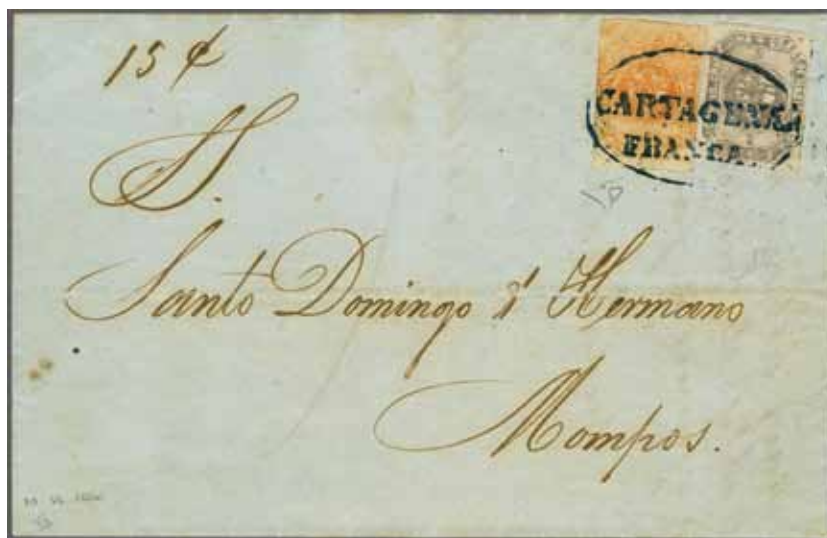 15 ¢
CARTAGENA
FRANCA.
S.S.
Santo Domingo é Hermano
Mompos.